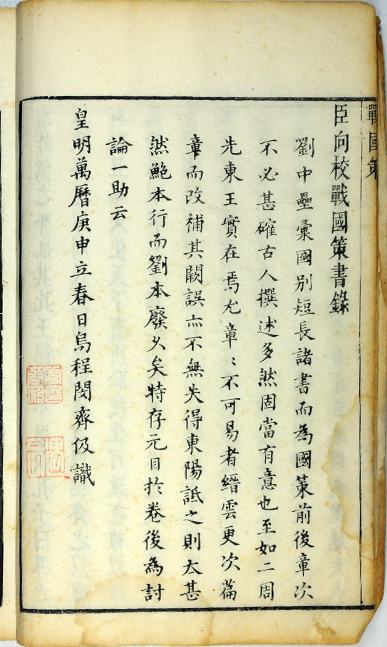 戰國策
臣向校戰國策書錄
劉中壘彙國別短長諸書而為國策前後章次
不必甚確古人撰述多然固當有意也至如二周
先東王實在焉尤章〻不可易者縉雲更次篇
章而改補其闕誤亦不無失得東陽詆之則太甚
然鮑本行而劉本廢久矣特存元目於卷後為討
論一助云
皇明萬曆庚申立春日烏程閔齊伋識